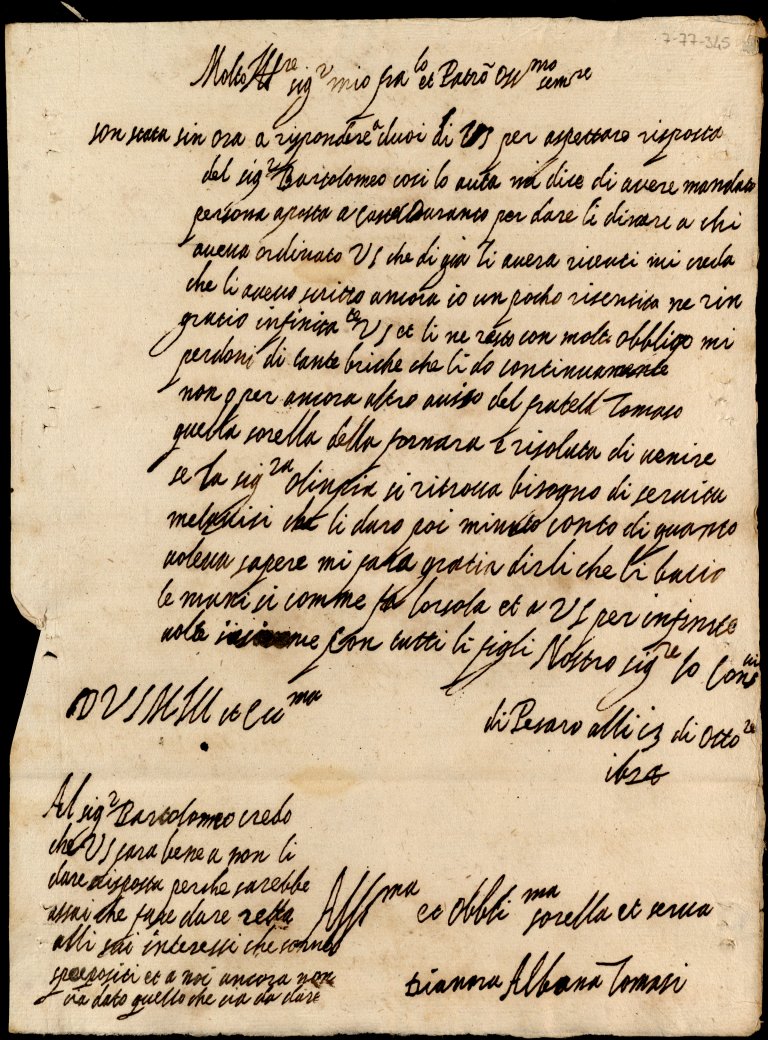 7-77-345
Molto Ill^re sig^r mio fra^lo et Patrō oss^mo sempre
son stata sin ora a rispondere a duoi di VS per aspettare risposta
del sig^r Bartolomeo cosi lo auta mi dice di avere mandato
persona aposta a Castel Duranto per dare li dinare a chi
aveva ordinato VS che di gia li avera riceuti mi creda
che li avevo scritto ancora io un pocho risentita ne rin
gratio infinita^te VS et li ne resto con molto obbligo mi
perdoni di tante brighe che li do continuamente
non o per ancora altro auiso del fratello Tomaso
quella sorella della fornara è risoluta di uenire
se la sig^ra Olinpia si ritroua bisogno di seruitu
me l auisi che li daro poi minuto conto di quanto
voleva sapere mi fara gratia dirli che li bacio
le mani si comme fa Lorsola et a VS per infinite
volte insieme con tutti li figli Nostro sig^re lo Con^
D VS M Ill et Cu^ma
di Pesaro alli 13 di Otto^re
Al sig^r Bartolomeo credo
che VS fara bene a non li
dare risposta perche sarebbe
assai che fare dare retta
alli sui interessi che sonno
spropositi et a noi ancora non
ia dato quello che cia da dare
Aff^ma et Obbli^ma sorella et serua
Dianora Albana Tomasi